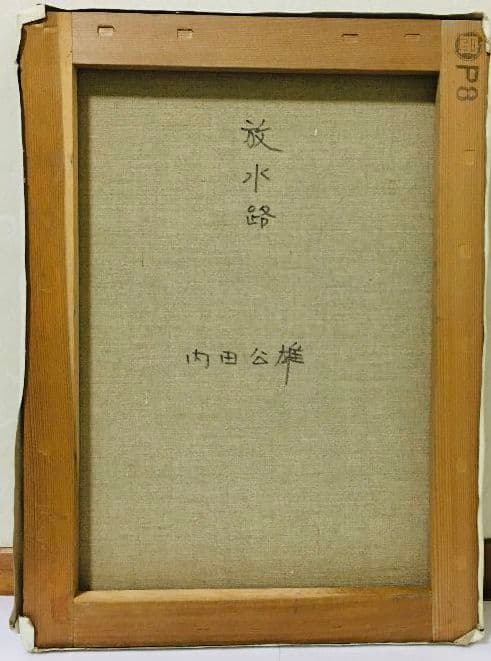 放水路
内田公雄
P8